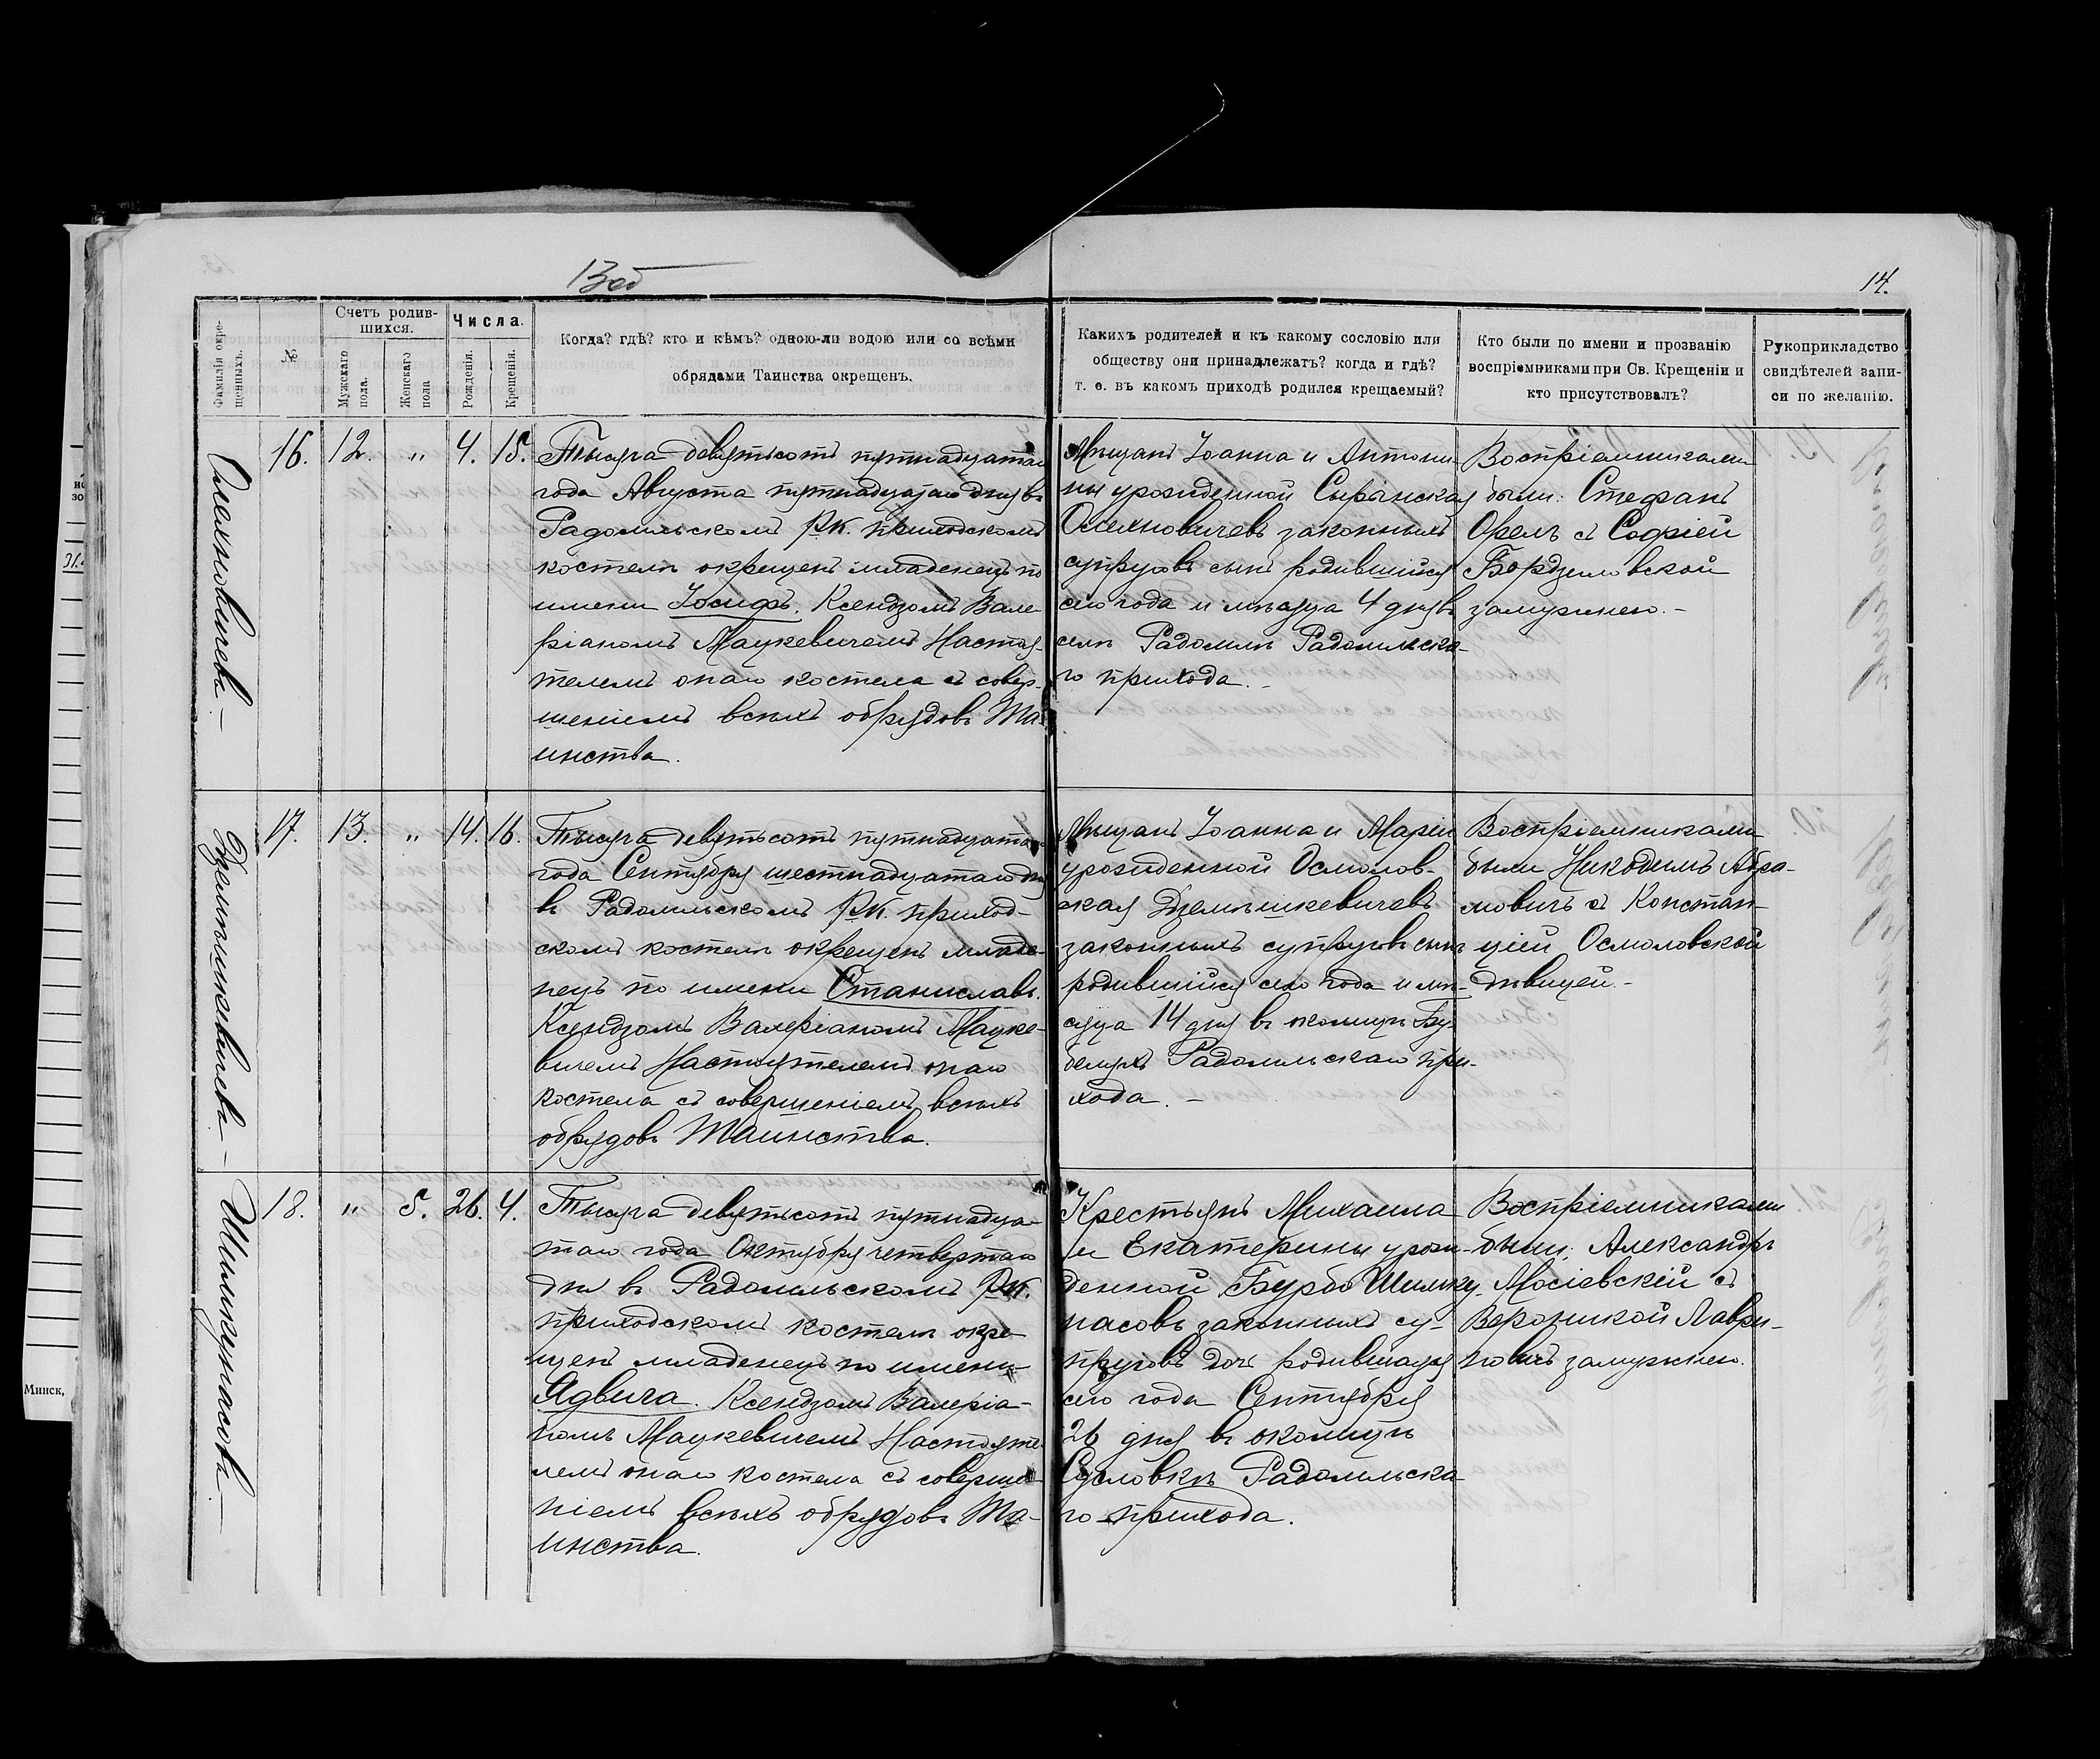 13об
14.
Фамилія окре-
щенныхъ.
№
Счетъ родив-
шихся.
Мужскаго
пола.
Женскаго
пола
Числа.
Рожденія.
Крещенія.
Когда? гдѣ? кто и кѣмъ? одною-ли водою или со всѣми
обрядами Таинства окрещенъ.
Какихъ родителей и къ какому сословію или
обществу они принадлежатъ? когда и гдѣ?
т. е. въ какомъ приходѣ родился крещаемый?
Кто были по имени и прозванію
воспріемниками при Св. Крещеніи и
кто присутствовалъ?
Рукоприкладство
свидѣтелей запи-
си по желанію.
Олехновичева.—
16.
12.
"
4.
15.
Тысяча девятьсотъ пятнадцатаго
года Августа пятнадцатаго дня въ
Радомльскомъ Р.К. приходскомъ
костелѣ окрещенъ младенецъ по
имени Іосифъ. Ксендзомъ Вале-
ріаномъ Мацкевичемъ Настоя-
телемъ онаго костела съ совер-
шеніемъ всѣхъ обрядовъ Та-
инства.
Мѣщанъ Іоанна и Антони-
ны урожденной Сырынская
Олехновичевъ законныхъ
супруговъ сынъ родившійся
сего года и мѣсяца 4 дня въ
селѣ Радомлѣ Радомльска-
го прихода.—
Воспріемниками
были: Стефанъ
Орелъ съ Софіей
Бордзиловской
замужнею.—
Дземѣшкевичева—
17.
13.
"
14.
16.
Тысяча девятьсотъ пятнадцатаго
года Сентября шестнадцатаго дня
въ Радомльскомъ Р.К. приход-
скомъ костелѣ окрещенъ младе-
нецъ по имени Станиславъ.
Ксендзомъ Валеріаномъ Мацке-
вичемъ Настоятелемъ онаго
костела съ совершеніемъ всѣхъ
обрядовъ Таинства.
Мѣщанъ Іоанна и Маріи
урожденной Осмолов-
ская Дземѣшкевичевъ
законныхъ супруговъ сынъ
родившійся сего года и мѣ-
сяца 14 дня въ околицѣ Бу-
беляхъ Радомльскаго при-
хода.—
Воспріемниками
были Никодимъ Абра-
мовичъ съ Констан-
ціей Осмоловской
дѣвицей.—
Шимкунасова—
18.
"
5.
26.
4.
Тысяча девятьсотъ пятнадца-
таго года Октября четвертаго
дня въ Радомльскомъ Р.К.
приходскомъ костелѣ окре-
щенъ младенецъ по имени
Ядвига. Ксендзомъ Валеріа-
номъ Мацкевичемъ Настояте-
лемъ онаго костела съ соверше-
ніемъ всѣхъ обрядовъ Та-
инства.
Крестьянъ Михаила
и Екатерины урож-
денной Бурбо Шимку-
насовъ законныхъ су-
пруговъ дочь родившаяся
сего года Сентября
26 дня въ околицѣ
Сусловкѣ Радомльска-
го прихода.
Воспріемниками
были: Александръ
Мосіевскій съ
Вероникой Лаври-
новичъ замужнею.
Минск,